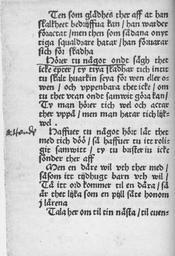 Ten som glädhes ther aff at han
skalkhet bedriffua kan / han warder
föractat / men then som sådana onyt
tiga sqwaldrare hatar / han förwarar
sich för skadha
Hörer tu något ondt sågh thet
icke effter / ty tiya skadhar tich intit
tu skalt huarkin seya för wen eller o⸗
wen / och vppenbara thet icke / om
tu thet vtan ondt samwit göra kan /
Ty man hörer tich wel och actar
ther vppå / men man hatar tich lijk⸗
wel.
Haffuer tu något hört lät thet
med tich döö / så haffuer tu itt roli⸗
git samwitt / ty tu brister in icke
sönder ther aff
Men en dåre wil vth ther med /
såsom itt tijdhugt barn vth wil /
Tå itt ord kommer til en dåra / så
är thet lijka som en pijl såte honom
j lårena
Tala her om til tin nästa / til euen⸗